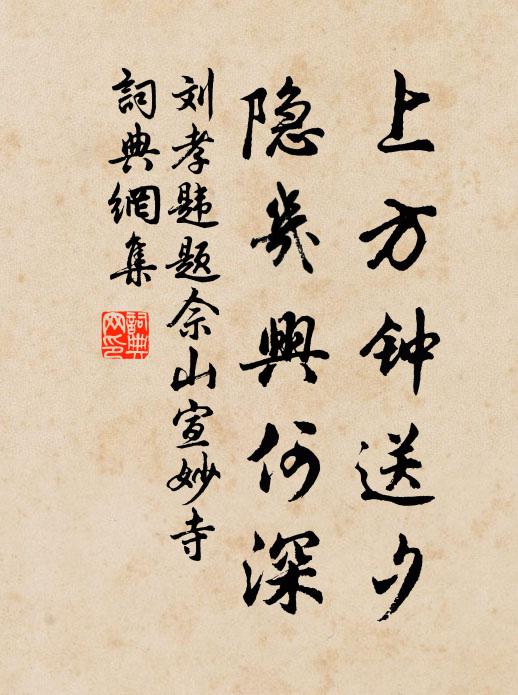 上方钟送夕
隐几興何深
刘孝韪题佘山宣妙寺
詞典網集
詞典網印